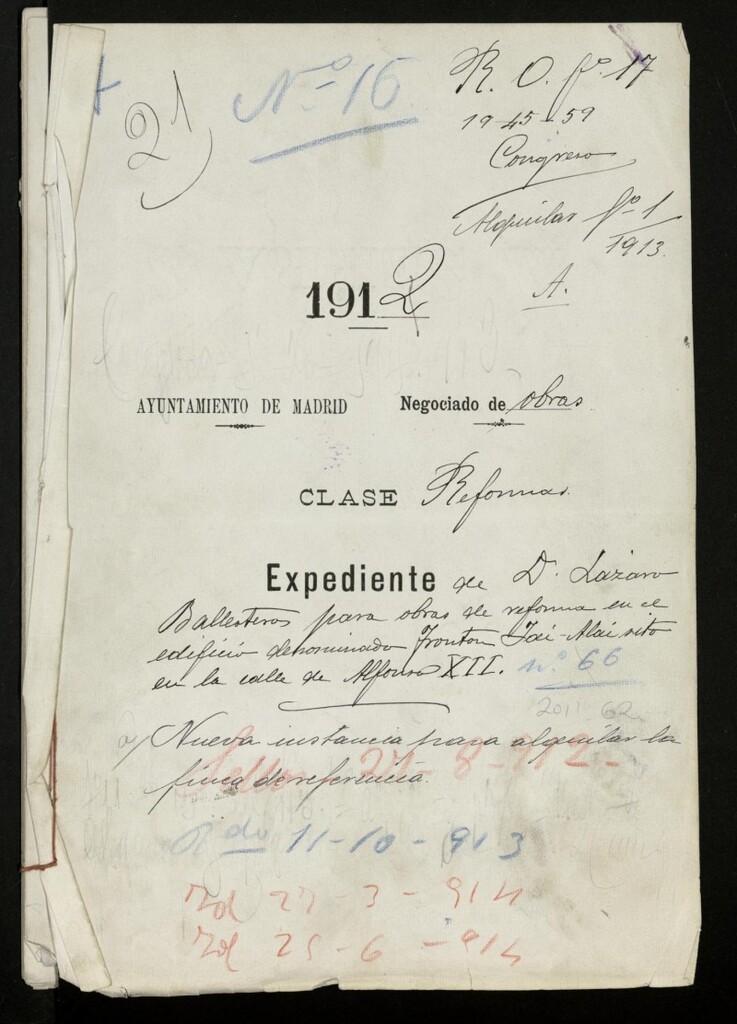 21
Nº 16
R. O. fº. 17
19-45-59
Congreso
Alquilar fº 1
1913.
A.
1912
AYUNTAMIENTO DE MADRID
Negociado de obras
CLASE Reformas.
Expediente de D. Lázaro
Ballesteros para obras de reforma en el
edificio denominado Fronton Jai-Alai sito
en la calle de Alfonso XII. nº 66
2011-62
a/ Nueva instancia para alquilar la
finca de referencia.
27-8-912-
Rdo 11-10-913
Rd 27-3-914
Rd 25-6-914